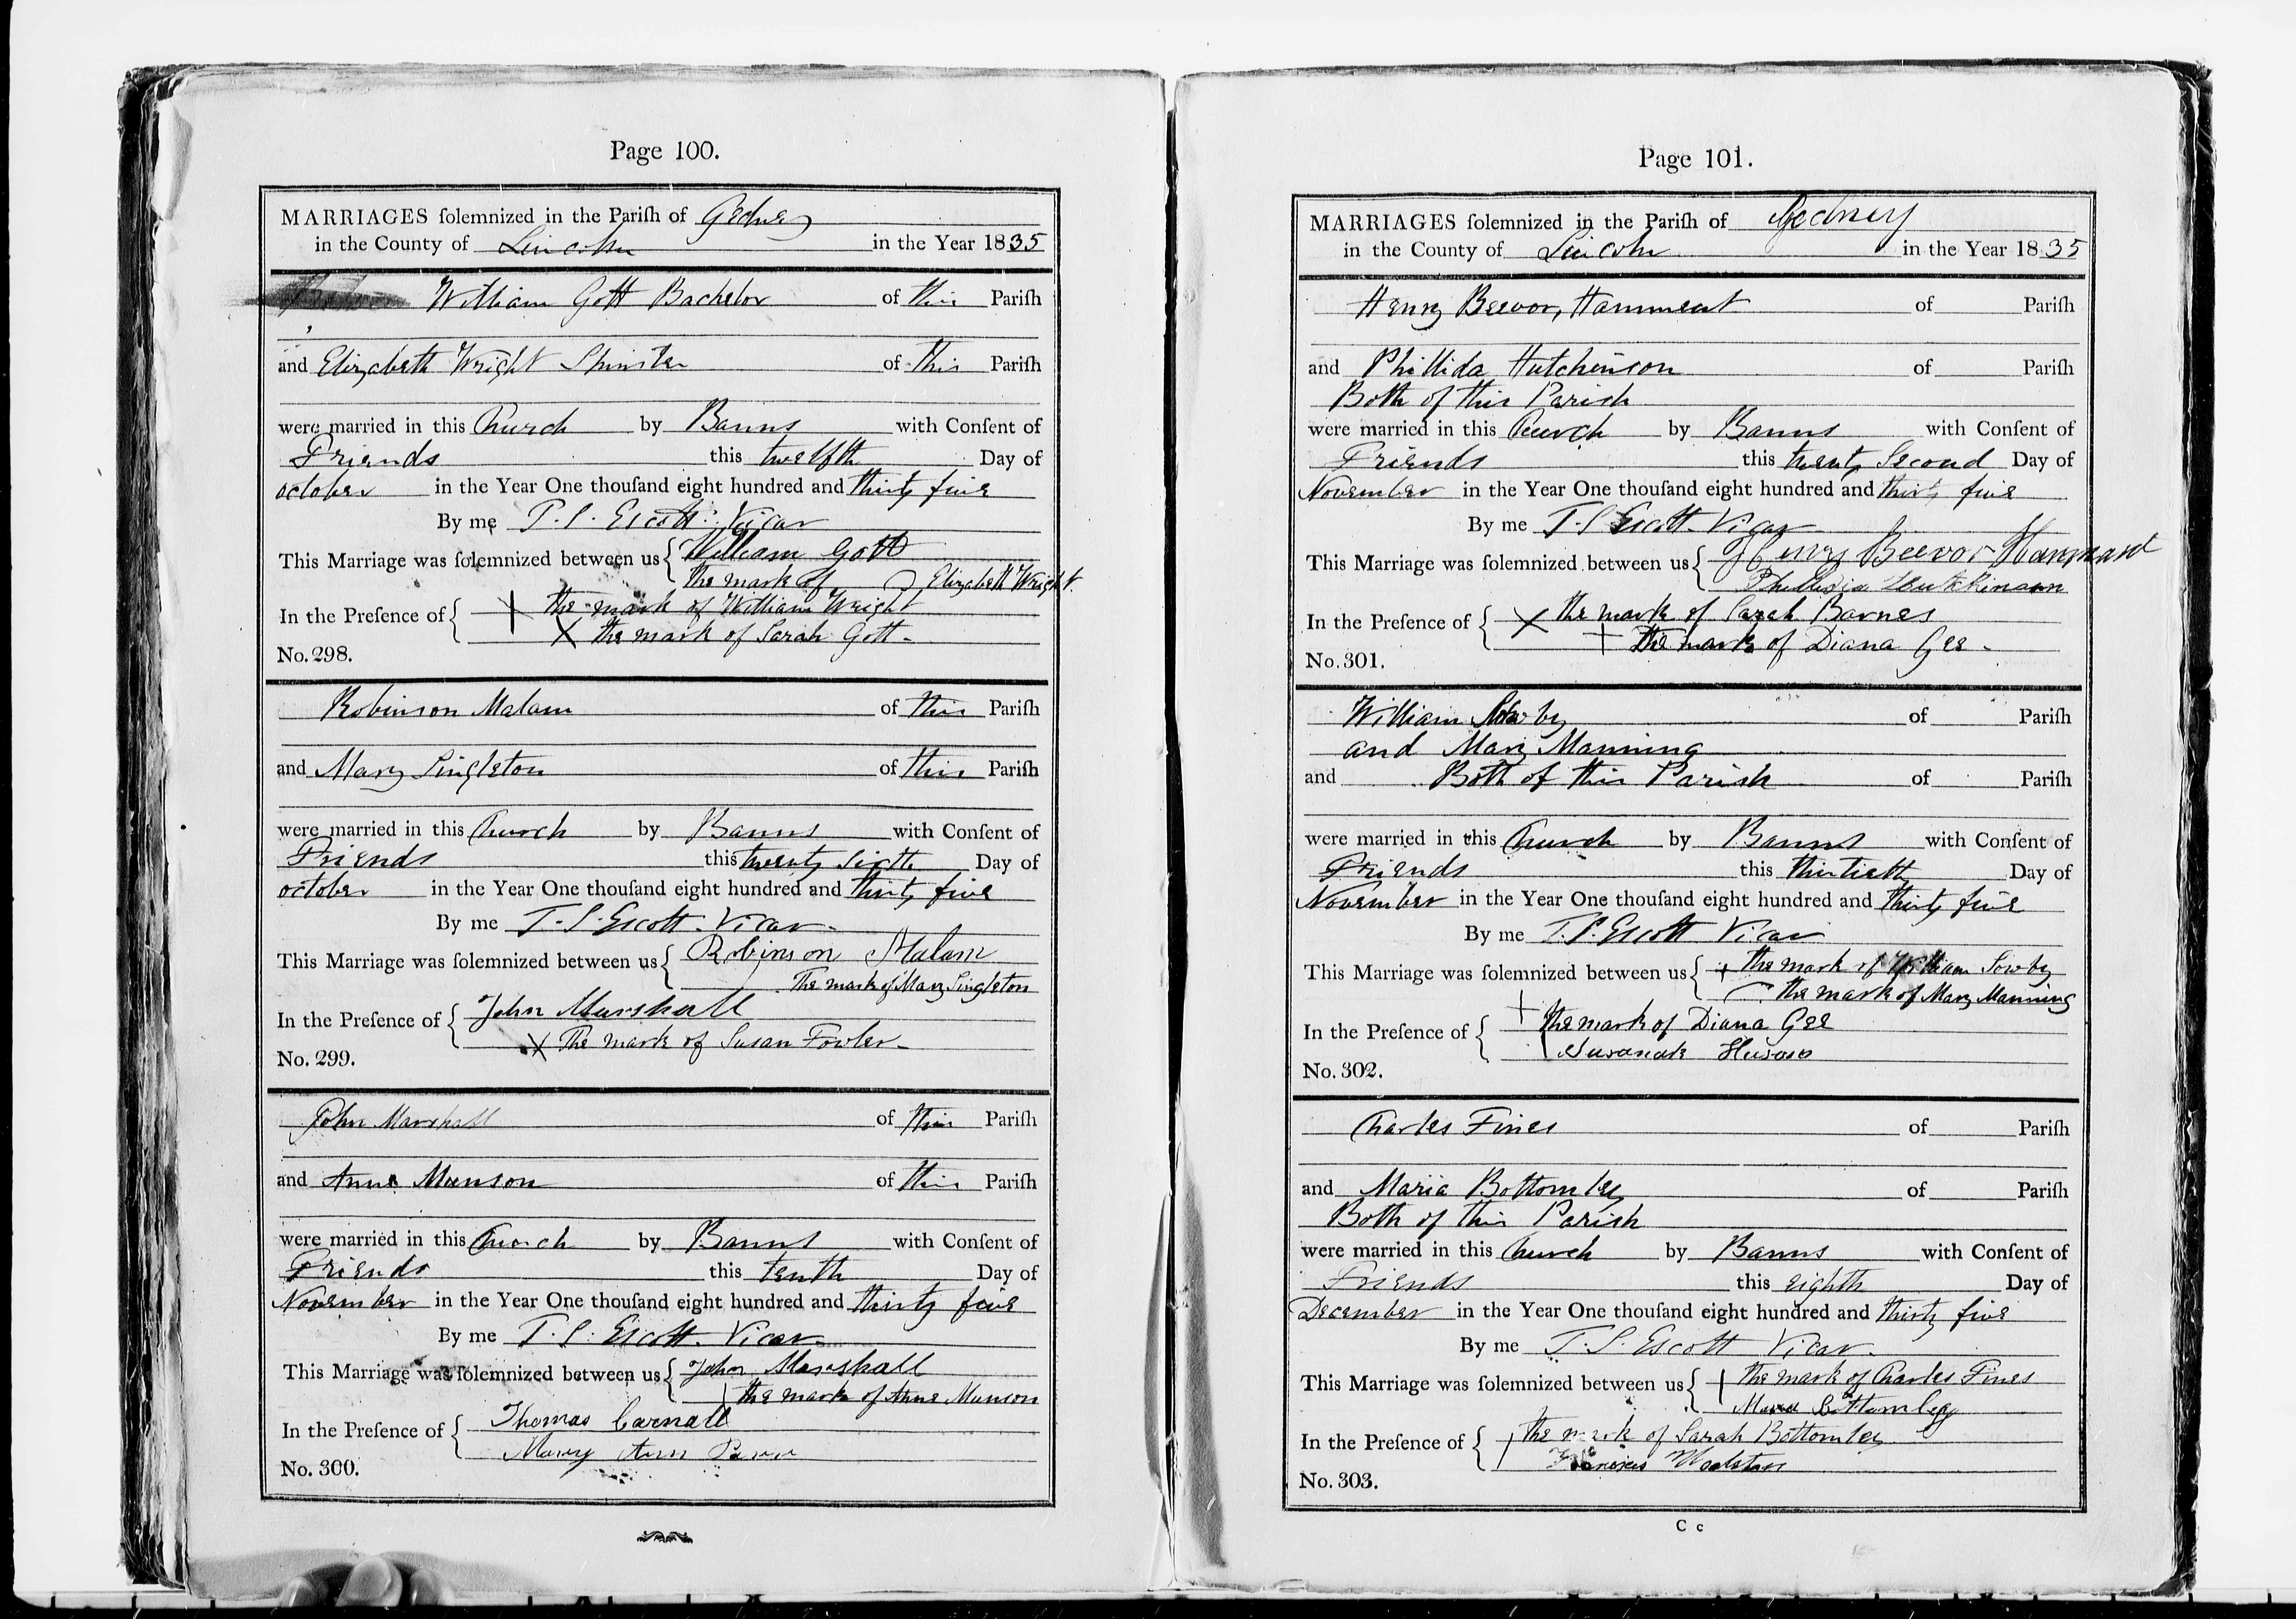 Page 100.
MARRIAGES ſolemnized in the Pariſh of Gedney
in the County of Lincoln in the Year 1835
William Gott Bachelor of this Pariſh
and Elizabeth Wright Spinster of this Pariſh
were married in this Church by Banns with Conſent of
Friends this twelfth Day of
october in the Year One thouſand eight hundred and thirty five
By me T. S. Escott. Vicar
This Marriage was ſolemnized between us { William Gott
the mark of Elizabeth Wright.
In the Preſence of { X the mark of William Wright
X the mark of Sarah Gott.
No. 298.
Robinson Malam of this Pariſh
and Mary Singleton of this Pariſh
were married in this Church by Banns with Conſent of
Friends this twenty sixth Day of
october in the Year One thouſand eight hundred and thirty five
By me T. S. Escott. Vicar.
This Marriage was ſolemnized between us { Robinson Malam
The mark of Mary Singleton
In the Preſence of { John Marshall
X The mark of Susan Fowler.
No. 299.
John Marshall of this Pariſh
and Anne Munson of this Pariſh
were married in this Church by Banns with Conſent of
Friends this tenth Day of
November in the Year One thouſand eight hundred and thirty five
By me T. S. Escott. Vicar.
This Marriage was ſolemnized between us { John Marshall
the mark of Anne Munson
In the Preſence of { Thomas Carnall
Mary Ann
No. 300.
Page 101.
MARRIAGES ſolemnized in the Pariſh of Gedney
in the County of Lincoln in the Year 1835
Henry Beevor, Hamment of Pariſh
and Phillida Hutchinson of Pariſh
Both of this Parish
were married in this Church by Banns with Conſent of
Friends this twenty Second Day of
November in the Year One thouſand eight hundred and thirty five
By me T. S Escott. Vicar
This Marriage was ſolemnized between us { Henry Beevor Hammant
Phillidia Hutchinson
In the Preſence of { X the mark of Sarah Barnes
+ the mark of Diana Gee.
No. 301.
William Sowby of Pariſh
and Mary Manning
and Both of this Parish of Pariſh
were married in this Church by Banns with Conſent of
Friends this thirtieth Day of
November in the Year One thouſand eight hundred and thirty five
By me T. S. Escott Vicar
This Marriage was ſolemnized between us { + the mark of William Sowby
the mark of Mary Manning
In the Preſence of { + the mark of Diana Gee
No. 302.
Charles Fines of Pariſh
and Maria Bottomley of Pariſh
Both of this Parish
were married in this Church by Banns with Conſent of
Friends this eighth Day of
December in the Year One thouſand eight hundred and thirty five
By me T. S. Escott Vicar.
This Marriage was ſolemnized between us { the mark of Charles Fines
Maria Bottomley
In the Preſence of { the mark of Sarah Bottomley
No. 303.
C c